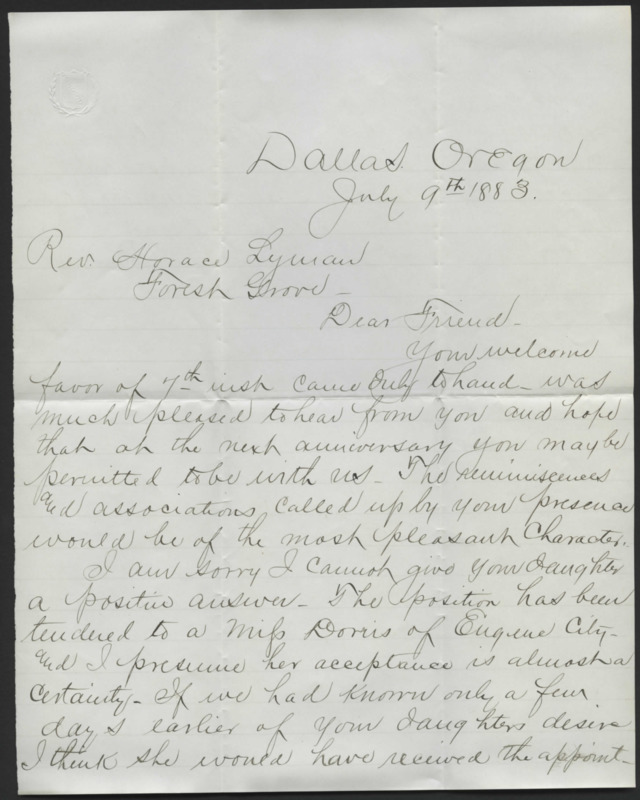 Dallas. Oregon
July 9th 1883.
Rev. Horace Lyman
Forest Grove -
Dear Friend -
Your welcome
favor of 7th inst came duly to hand - was
much pleased to hear from you and hope
that at the next anniversary you may be
permitted to be with us - The reminiscences
and associations called up by your presence
would be of the most pleasant character.
I am sorry I cannot give your daughter
a positive answer - The position has been
tendered to a Miss Dorris of Eugene City -
and I presume her acceptance is almost a
certainty - If we had known only a few
days earlier of your daughters desire
I think she would have received the appoint-